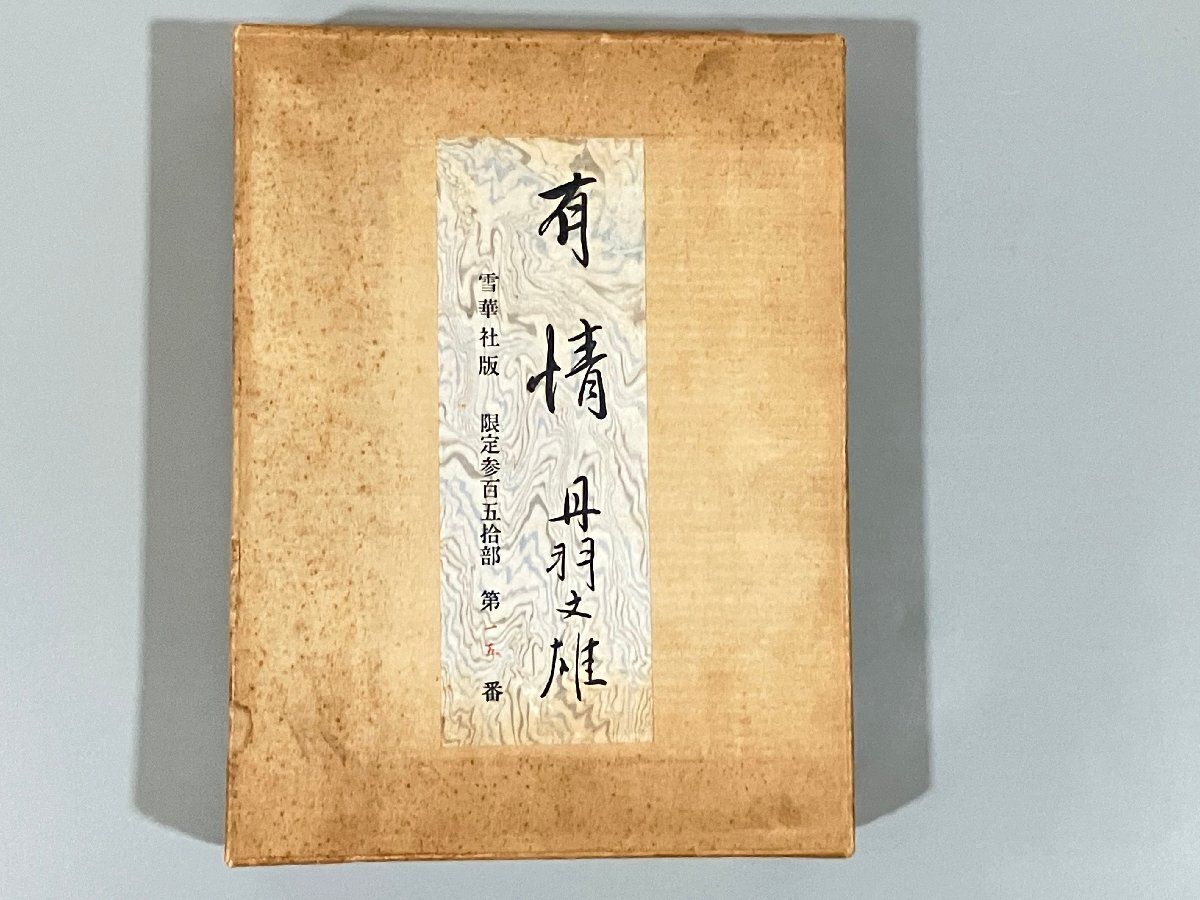 有情 丹羽文雄
雪華社版 限定参百五拾部 第一五番